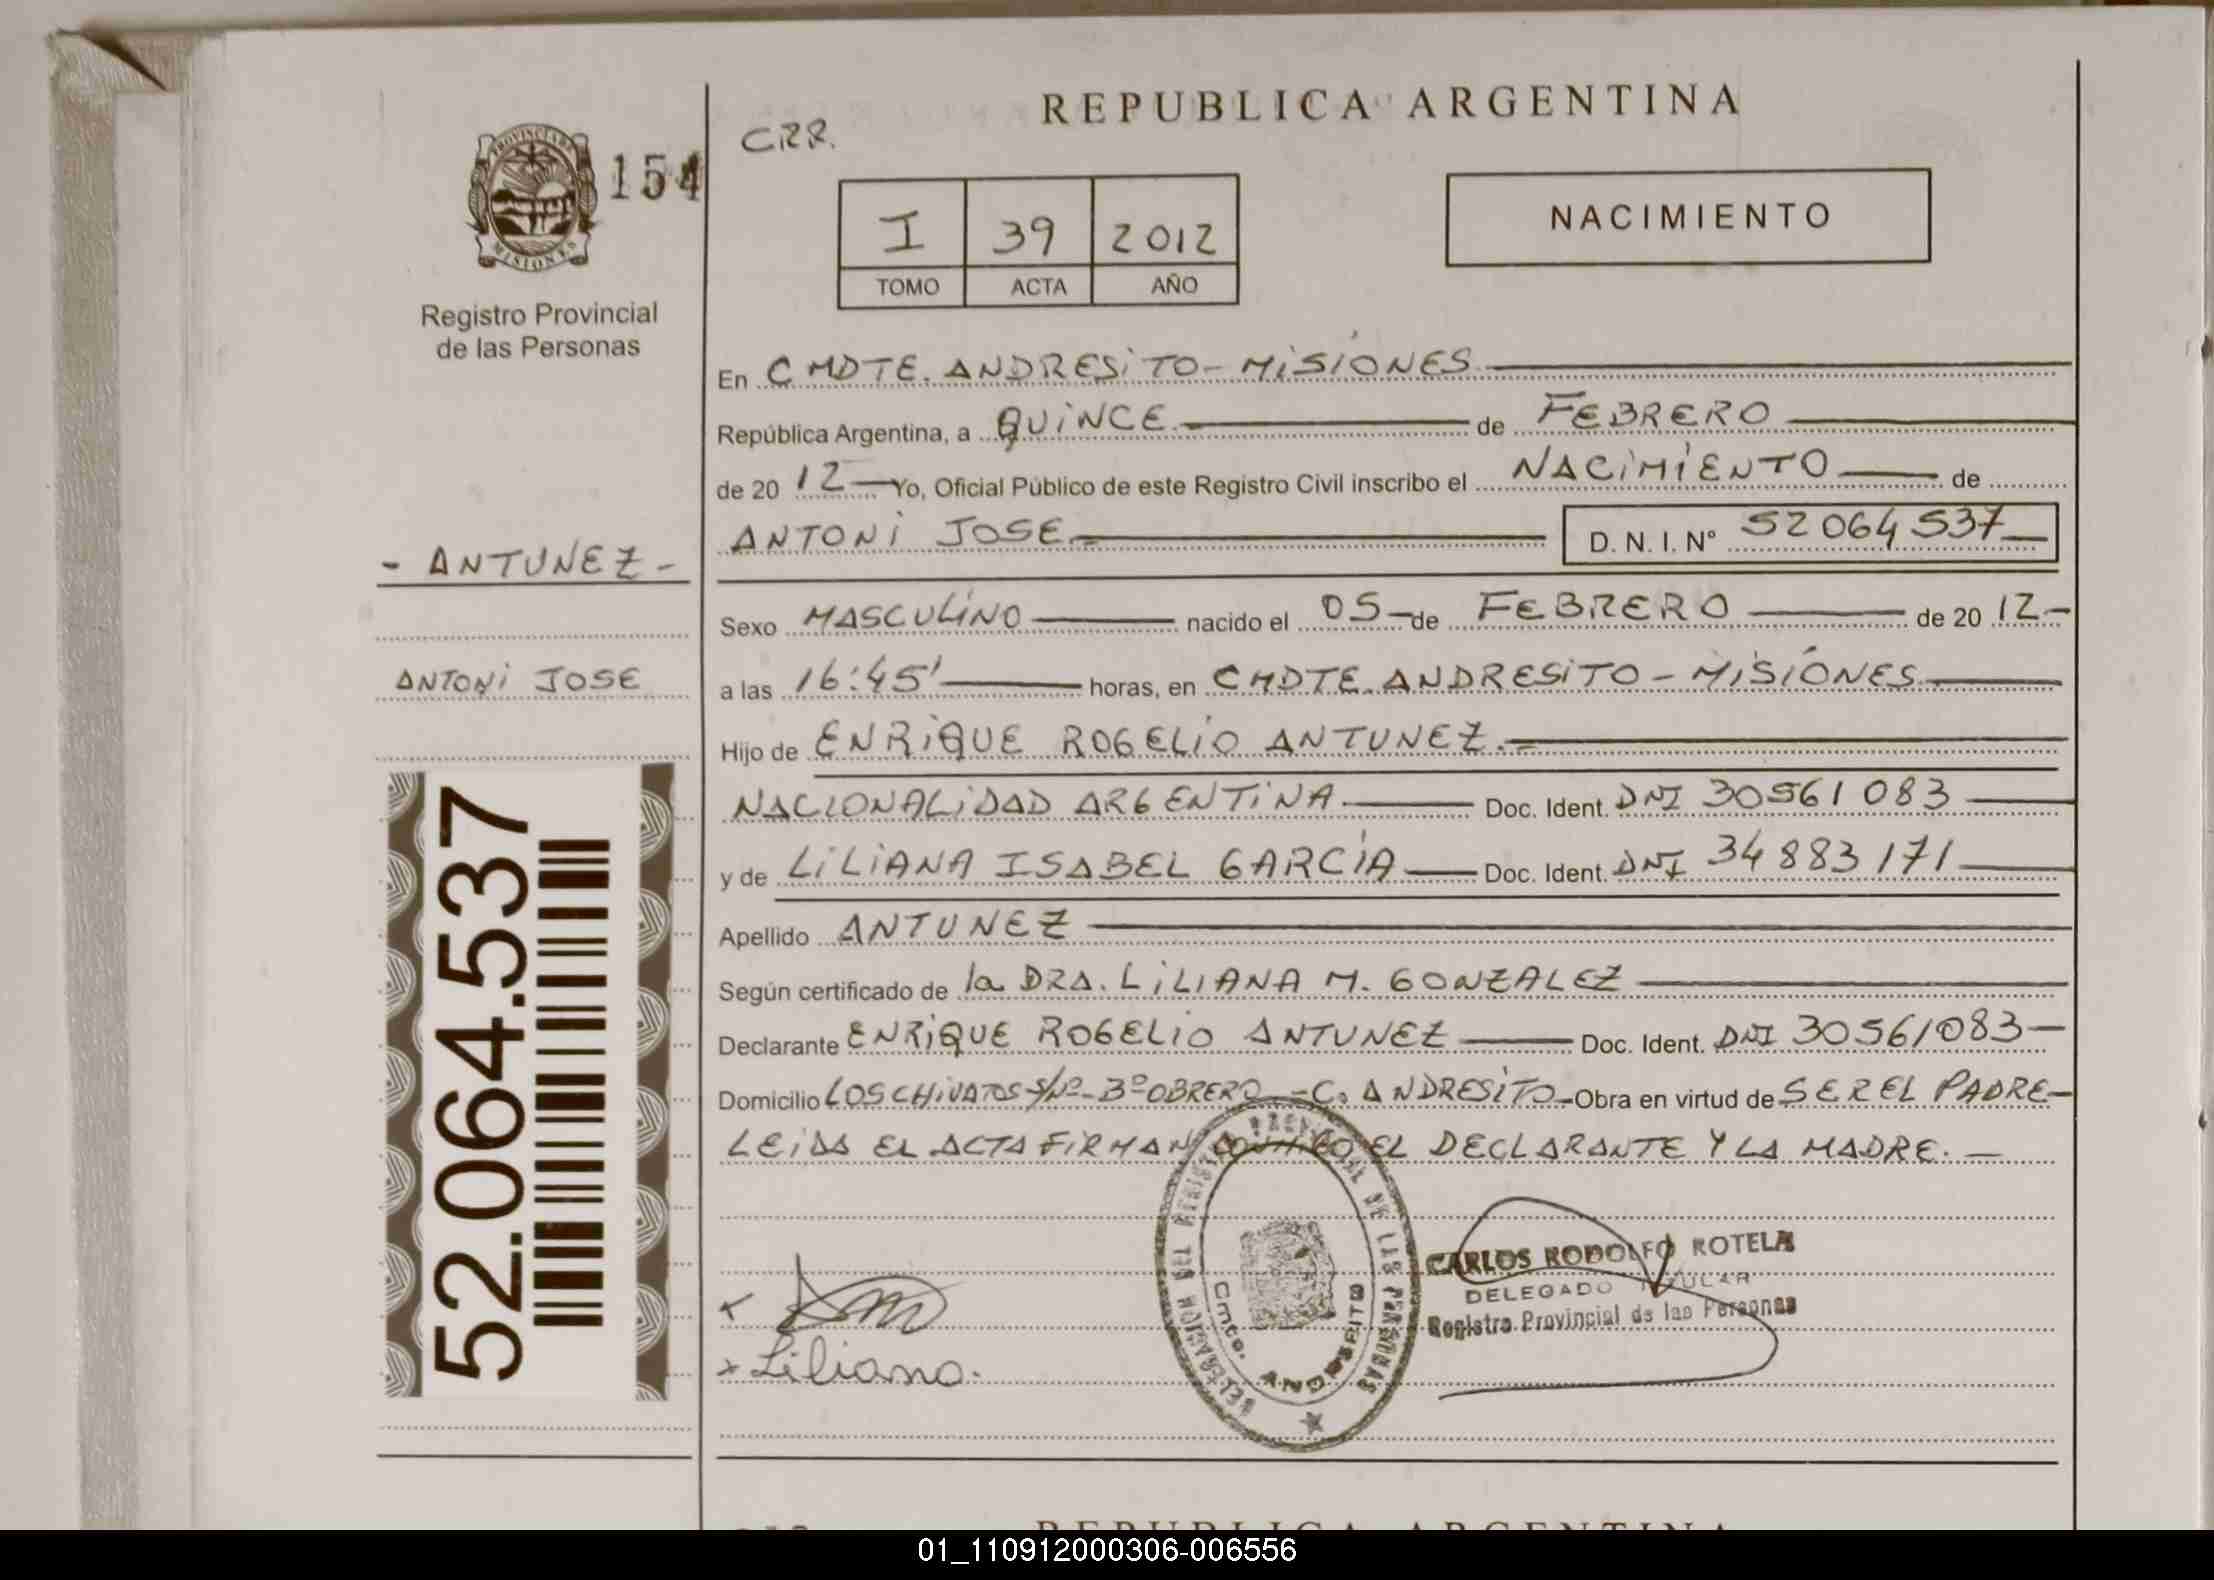 REPUBLICA ARGENTINA
PROVINCIA DE MISIONES
154
CRR.
I 39 2012
TOMO ACTA AÑO
NACIMIENTO
Registro Provincial
de las Personas
En CMDTE. ANDRESITO - MISIONES
República Argentina, a QUINCE de FEBRERO
de 20 12 Yo, Oficial Público de este Registro Civil inscribo el NACIMIENTO de
ANTONI JOSE D. N. I. Nº 52064537
- ANTUNEZ -
Sexo MASCULINO nacido el 05 de FEBRERO de 20 12
ANTONI JOSE
a las 16:45' horas, en CMDTE. ANDRESITO - MISIONES
Hijo de ENRIQUE ROGELIO ANTUNEZ.
NACIONALIDAD ARGENTINA Doc. Ident. DNI 30561083
y de LILIANA ISABEL GARCIA Doc. Ident. DNI 34883171
Apellido ANTUNEZ
Según certificado de la DRA. LILIANA M. GONZALEZ
Declarante ENRIQUE ROGELIO ANTUNEZ Doc. Ident. DNI 30561083
Domicilio LOS CHIVATOS S/Nº - Bº OBRERO - C. ANDRESITO - Obra en virtud de SER EL PADRE -
LEIDA EL ACTA FIRMAN CONMIGO EL DECLARANTE Y LA MADRE. -
52.064.537
DELEGACION DEL REGISTRO PROVINCIAL DE LAS PERSONAS
Cmte. ANDRESITO
CARLOS RODOLFO ROTELA
DELEGADO TITULAR
Registro Provincial de las Personas
x
x Liliana.
REPUBLICA ARGENTINA
01_110912000306-006556